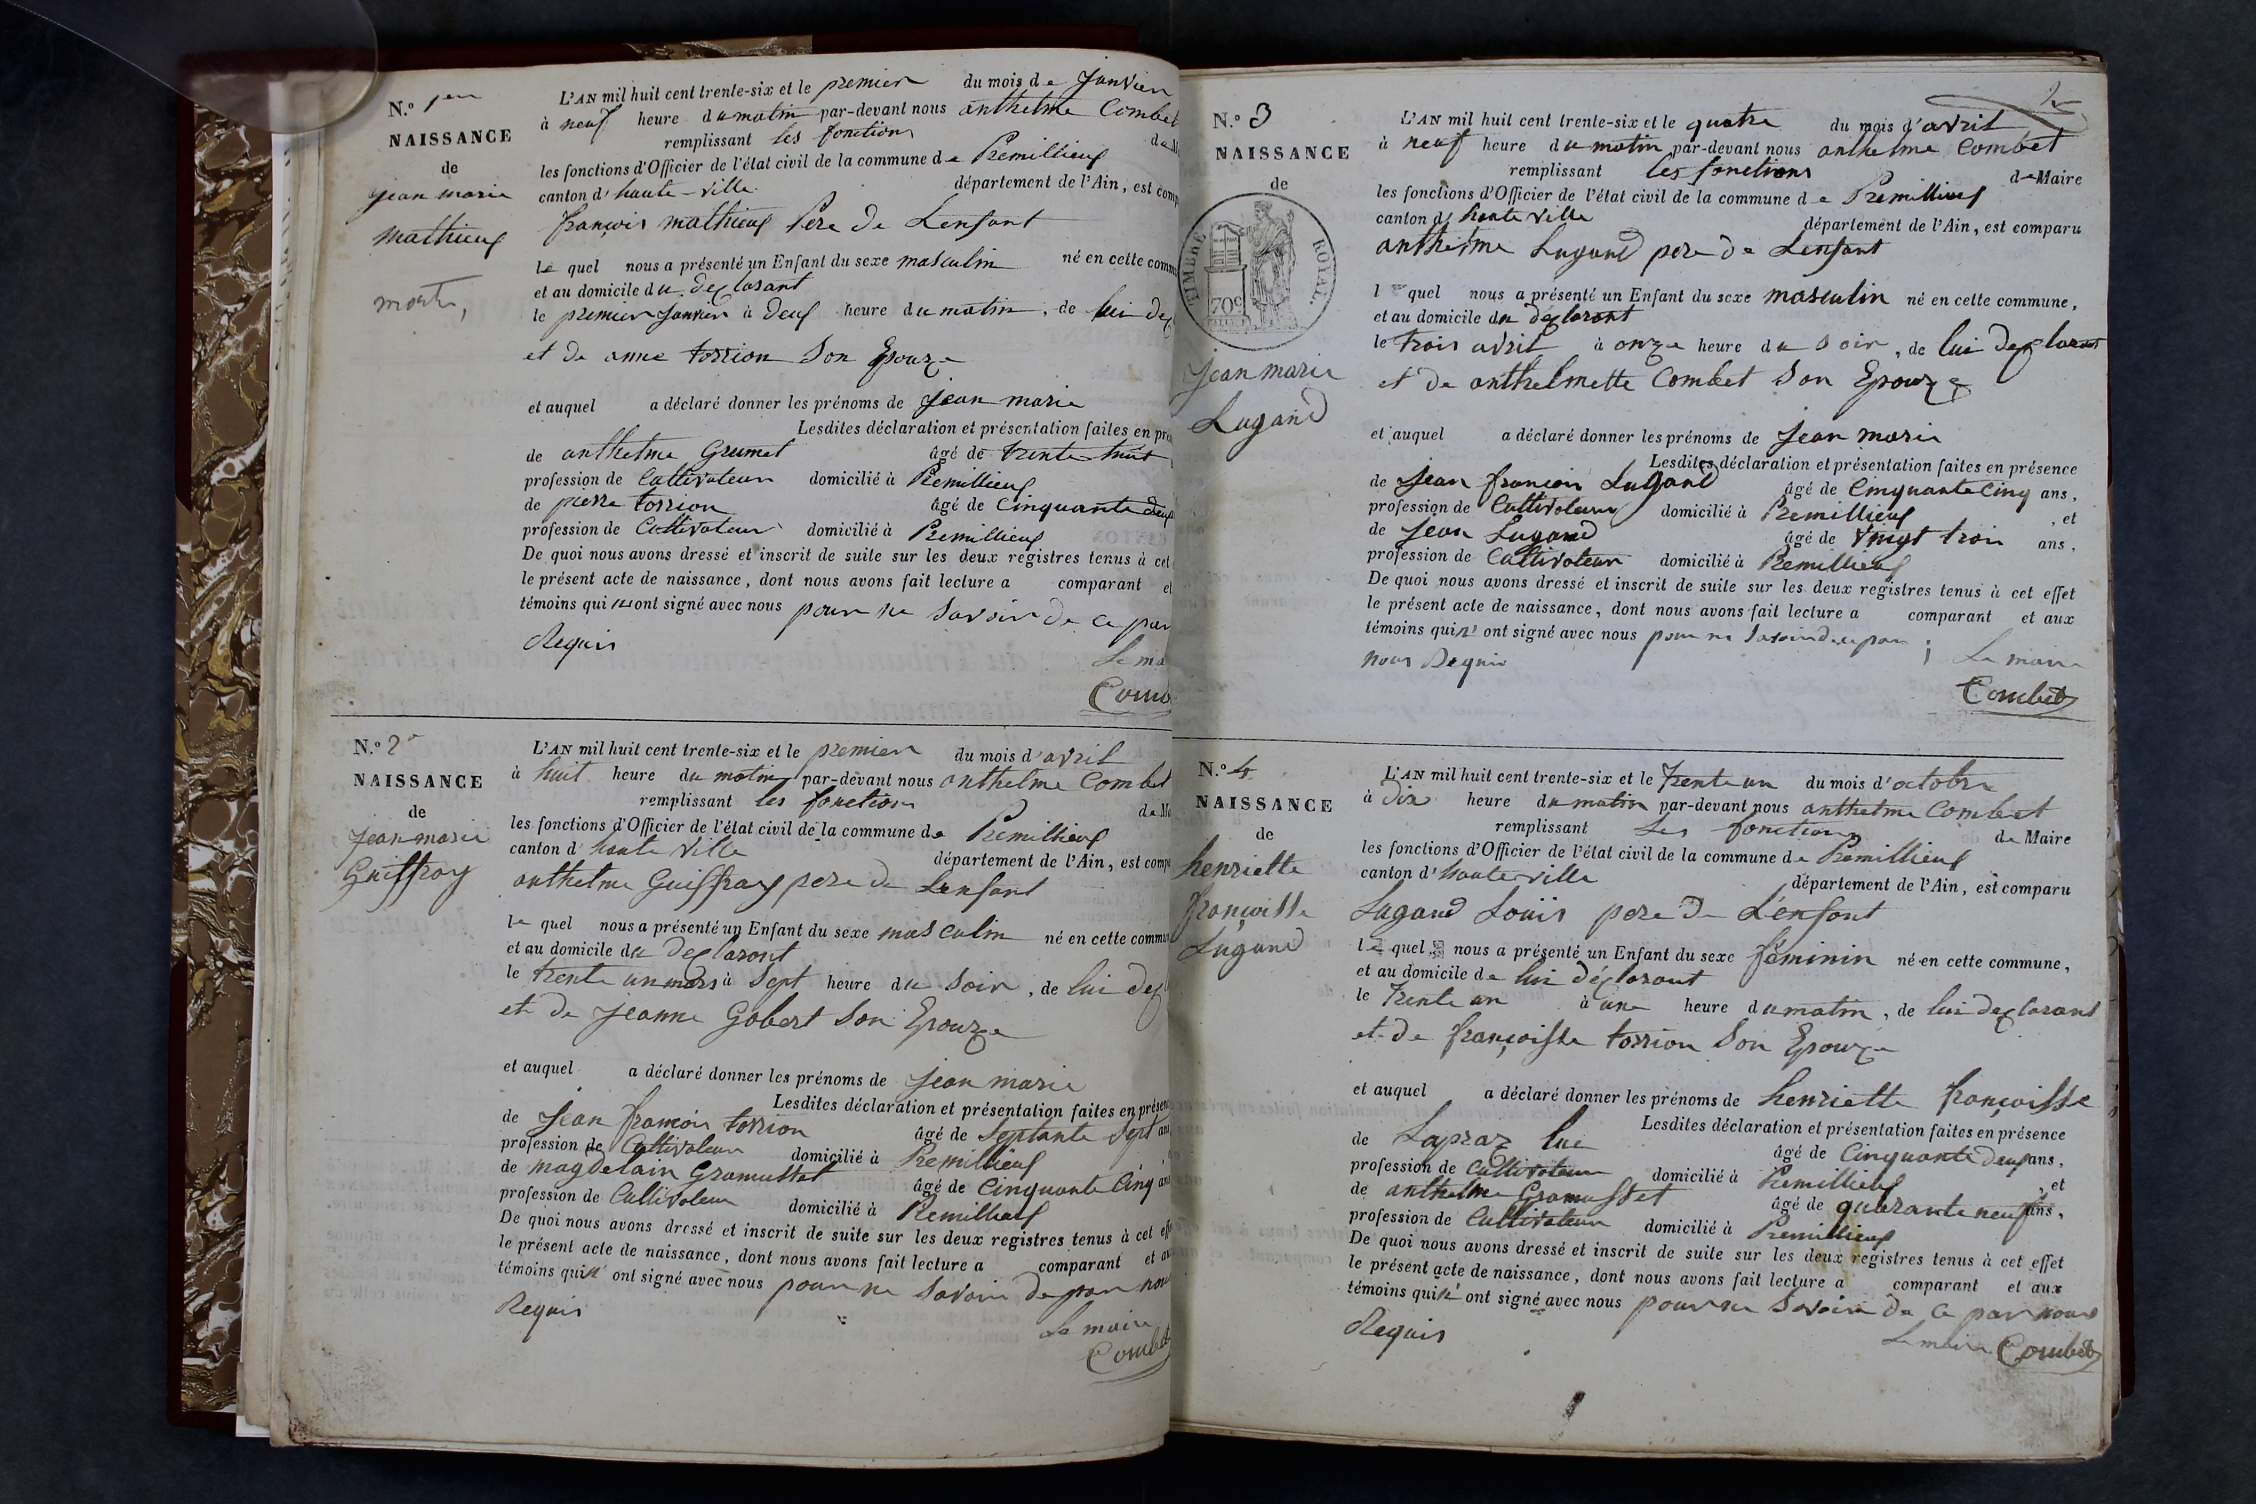 N.o 1er
NAISSANCE
de
jean marie
mathieux
morte,
L'AN mil huit cent trente-six et le premier du mois de janvier
à neuf heure du matin par-devant nous anthelme Combet
remplissant les fonctions de M
les fonctions d'Officier de l'état civil de la commune de Premillieux
canton d'haute-ville département de l'Ain, est comp
françois mathieux Pere de Lenfant
le quel nous a présenté un Enfant du sexe masculin né en cette comm
et au domicile du declarant
le premier janvier à deux heure du matin, de lui dec
et de anne torrion son Epouze
et auquel a déclaré donner les prénoms de jean marie
Lesdites déclaration et présentation faites en pré
de anthelme Grumet âgé de trente-huit
profession de Cultivateur domicilié à Premillieux
de pierre torrion âgé de Cinquante deux
profession de Cultivateur domicilié à Premillieux
De quoi nous avons dressé et inscrit de suite sur les deux registres tenus à cet
le présent acte de naissance, dont nous avons fait lecture a comparant et
témoins qui n'ont signé avec nous pour ne savoir de ce par
Requis
Le ma
Comb
N.o 2e
NAISSANCE
de
jean marie
Guiffray
L'AN mil huit cent trente-six et le premier du mois d'avril
à huit heure du matin par-devant nous anthelme Combet
remplissant les fonctions de Ma
les fonctions d'Officier de l'état civil de la commune de Premillieux
canton d'haute ville département de l'Ain, est compa
anthelme Guiffray pere de Lenfant
le quel nous a présenté un Enfant du sexe masculin né en cette commun
et au domicile du declarant
le trente un mars à sept heure du soir, de lui dec
et de jeanne Gobert son Epouze
et auquel a déclaré donner les prénoms de jean marie
Lesdites déclaration et présentation faites en présenc
de jean françois torrion âgé de septante sept ans
profession de Cultivateur domicilié à Premillieux
de magdelain Gramusset âgé de Cinquante Cinq ans
profession de Cultivateur domicilié à Premillieux
De quoi nous avons dressé et inscrit de suite sur les deux registres tenus à cet eff
le présent acte de naissance, dont nous avons fait lecture a comparant et au
témoins qui n' ont signé avec nous pour ne savoir de par nou
Requis
Le maire
Combet
N.o 3
NAISSANCE
de
TIMBRE ROYAL.
70c
jean marie
Lugand
L'AN mil huit cent trente-six et le quatre du mois d'avril
à neuf heure du matin par-devant nous anthelme Combet
remplissant les fonctions de Maire
les fonctions d'Officier de l'état civil de la commune de Premillieux
canton de haute ville département de l'Ain, est comparu
anthelme Lugand pere de Lenfant
le quel nous a présenté un Enfant du sexe masculin né en cette commune,
et au domicile du declarant
le trois avril à onze heure du soir, de lui declarant
et de anthelmette Combet son Epouze
et auquel a déclaré donner les prénoms de jean marie
Lesdites déclaration et présentation faites en présence
de jean françois Lugand âgé de Cinquante Cinq ans,
profession de Cultivateur domicilié à Premillieux, et
de jean Lugand âgé de vingt trois ans,
profession de Cultivateur domicilié à Premillieux
De quoi nous avons dressé et inscrit de suite sur les deux registres tenus à cet effet
le présent acte de naissance, dont nous avons fait lecture a comparant et aux
témoins qui n' ont signé avec nous pour ne savoir de ce par
nous Requis Le maire
Combet
N.o 4
NAISSANCE
de
henriette
françoisse
Lugand
L'AN mil huit cent trente-six et le trente un du mois d'octobre
à dix heure du matin par-devant nous anthelme Combet
remplissant Les fonctions de Maire
les fonctions d'Officier de l'état civil de la commune de Premillieux
canton d'hauteville département de l'Ain, est comparu
Lugand Louis pere de L'enfant
le quel nous a présenté un Enfant du sexe féminin né en cette commune,
et au domicile de lui déclarant
le trente un à une heure du matin, de lui declarant
et de françoisse torrion son Epouze
et auquel a déclaré donner les prénoms de henriette françoisse
Lesdites déclaration et présentation faites en présence
de Lapraz luc âgé de Cinquante deux ans,
profession de Cultivateur domicilié à Premillieux, et
de anthelme Gramusset âgé de quarante neuf ans,
profession de Cultivateur domicilié à Premillieux
De quoi nous avons dressé et inscrit de suite sur les deux registres tenus à cet effet
le présent acte de naissance, dont nous avons fait lecture a comparant et aux
témoins qui n' ont signé avec nous pour ne savoir de ce par nous
Requis
Le maire Combet